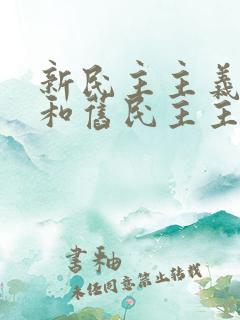 新民主主義
和舊民主主
書釉
未經同意禁止轉載